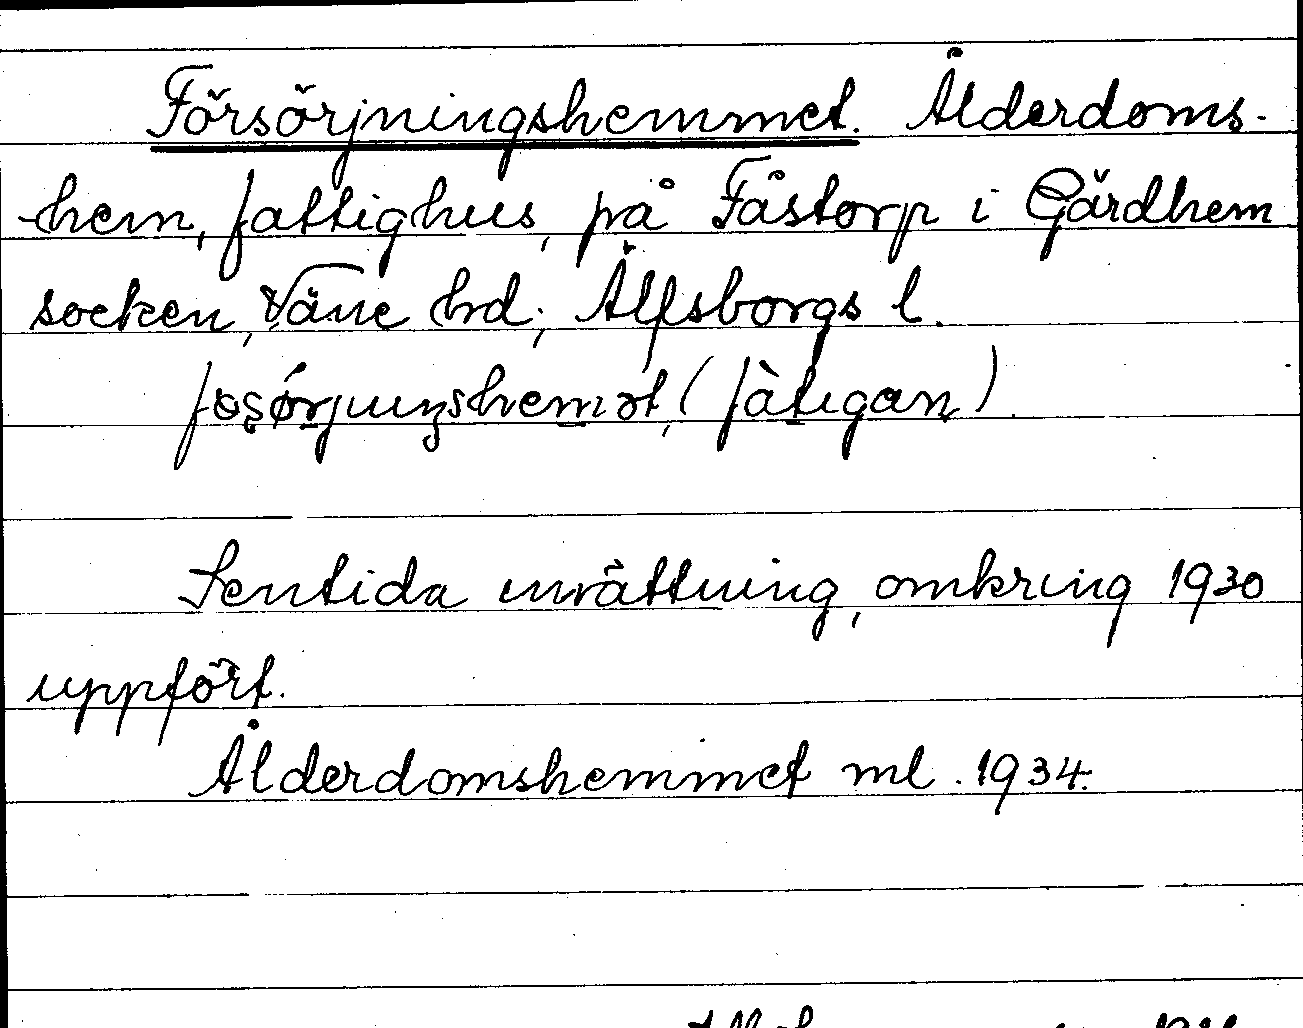 Försörjningshemmet. Ålderdoms-
hem, fattighus, på Fåstorp i Gärdhem
socken, Väne hd; Älfsborgs l.
(fàtigan).
Sentida inrättning, omkring 1930
uppfört.
Ålderdomshemmet ml. 1934.